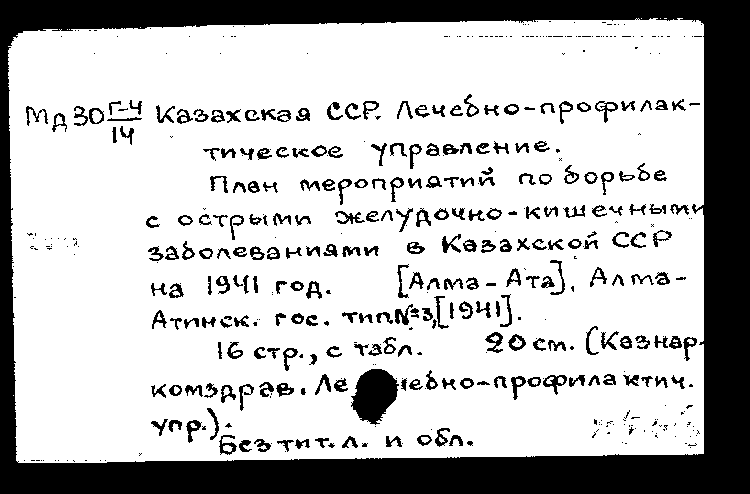 Мд30 Г-4/14 Казахская ССР. Лечебно-профилак-
тическое управление.
План мероприятий по борьбе
с острыми желудочно-кишечными
заболеваниями в Казахской ССР
на 1941 год. [Алма-Ата], Алма-
Атинск. гос. тип. №3, [1941].
16 стр., с табл. 20 см. (Казнар-
комздрав. Ле чебно-профилактич.
упр.).
Без тит. л. и обл.